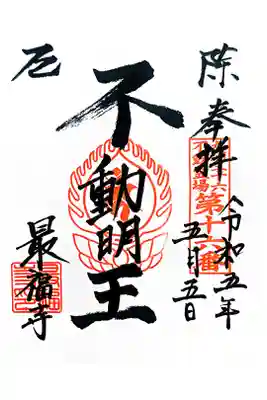 厄除
奉拝
第十六番
令和五年
五月五日
不動明王
最福寺